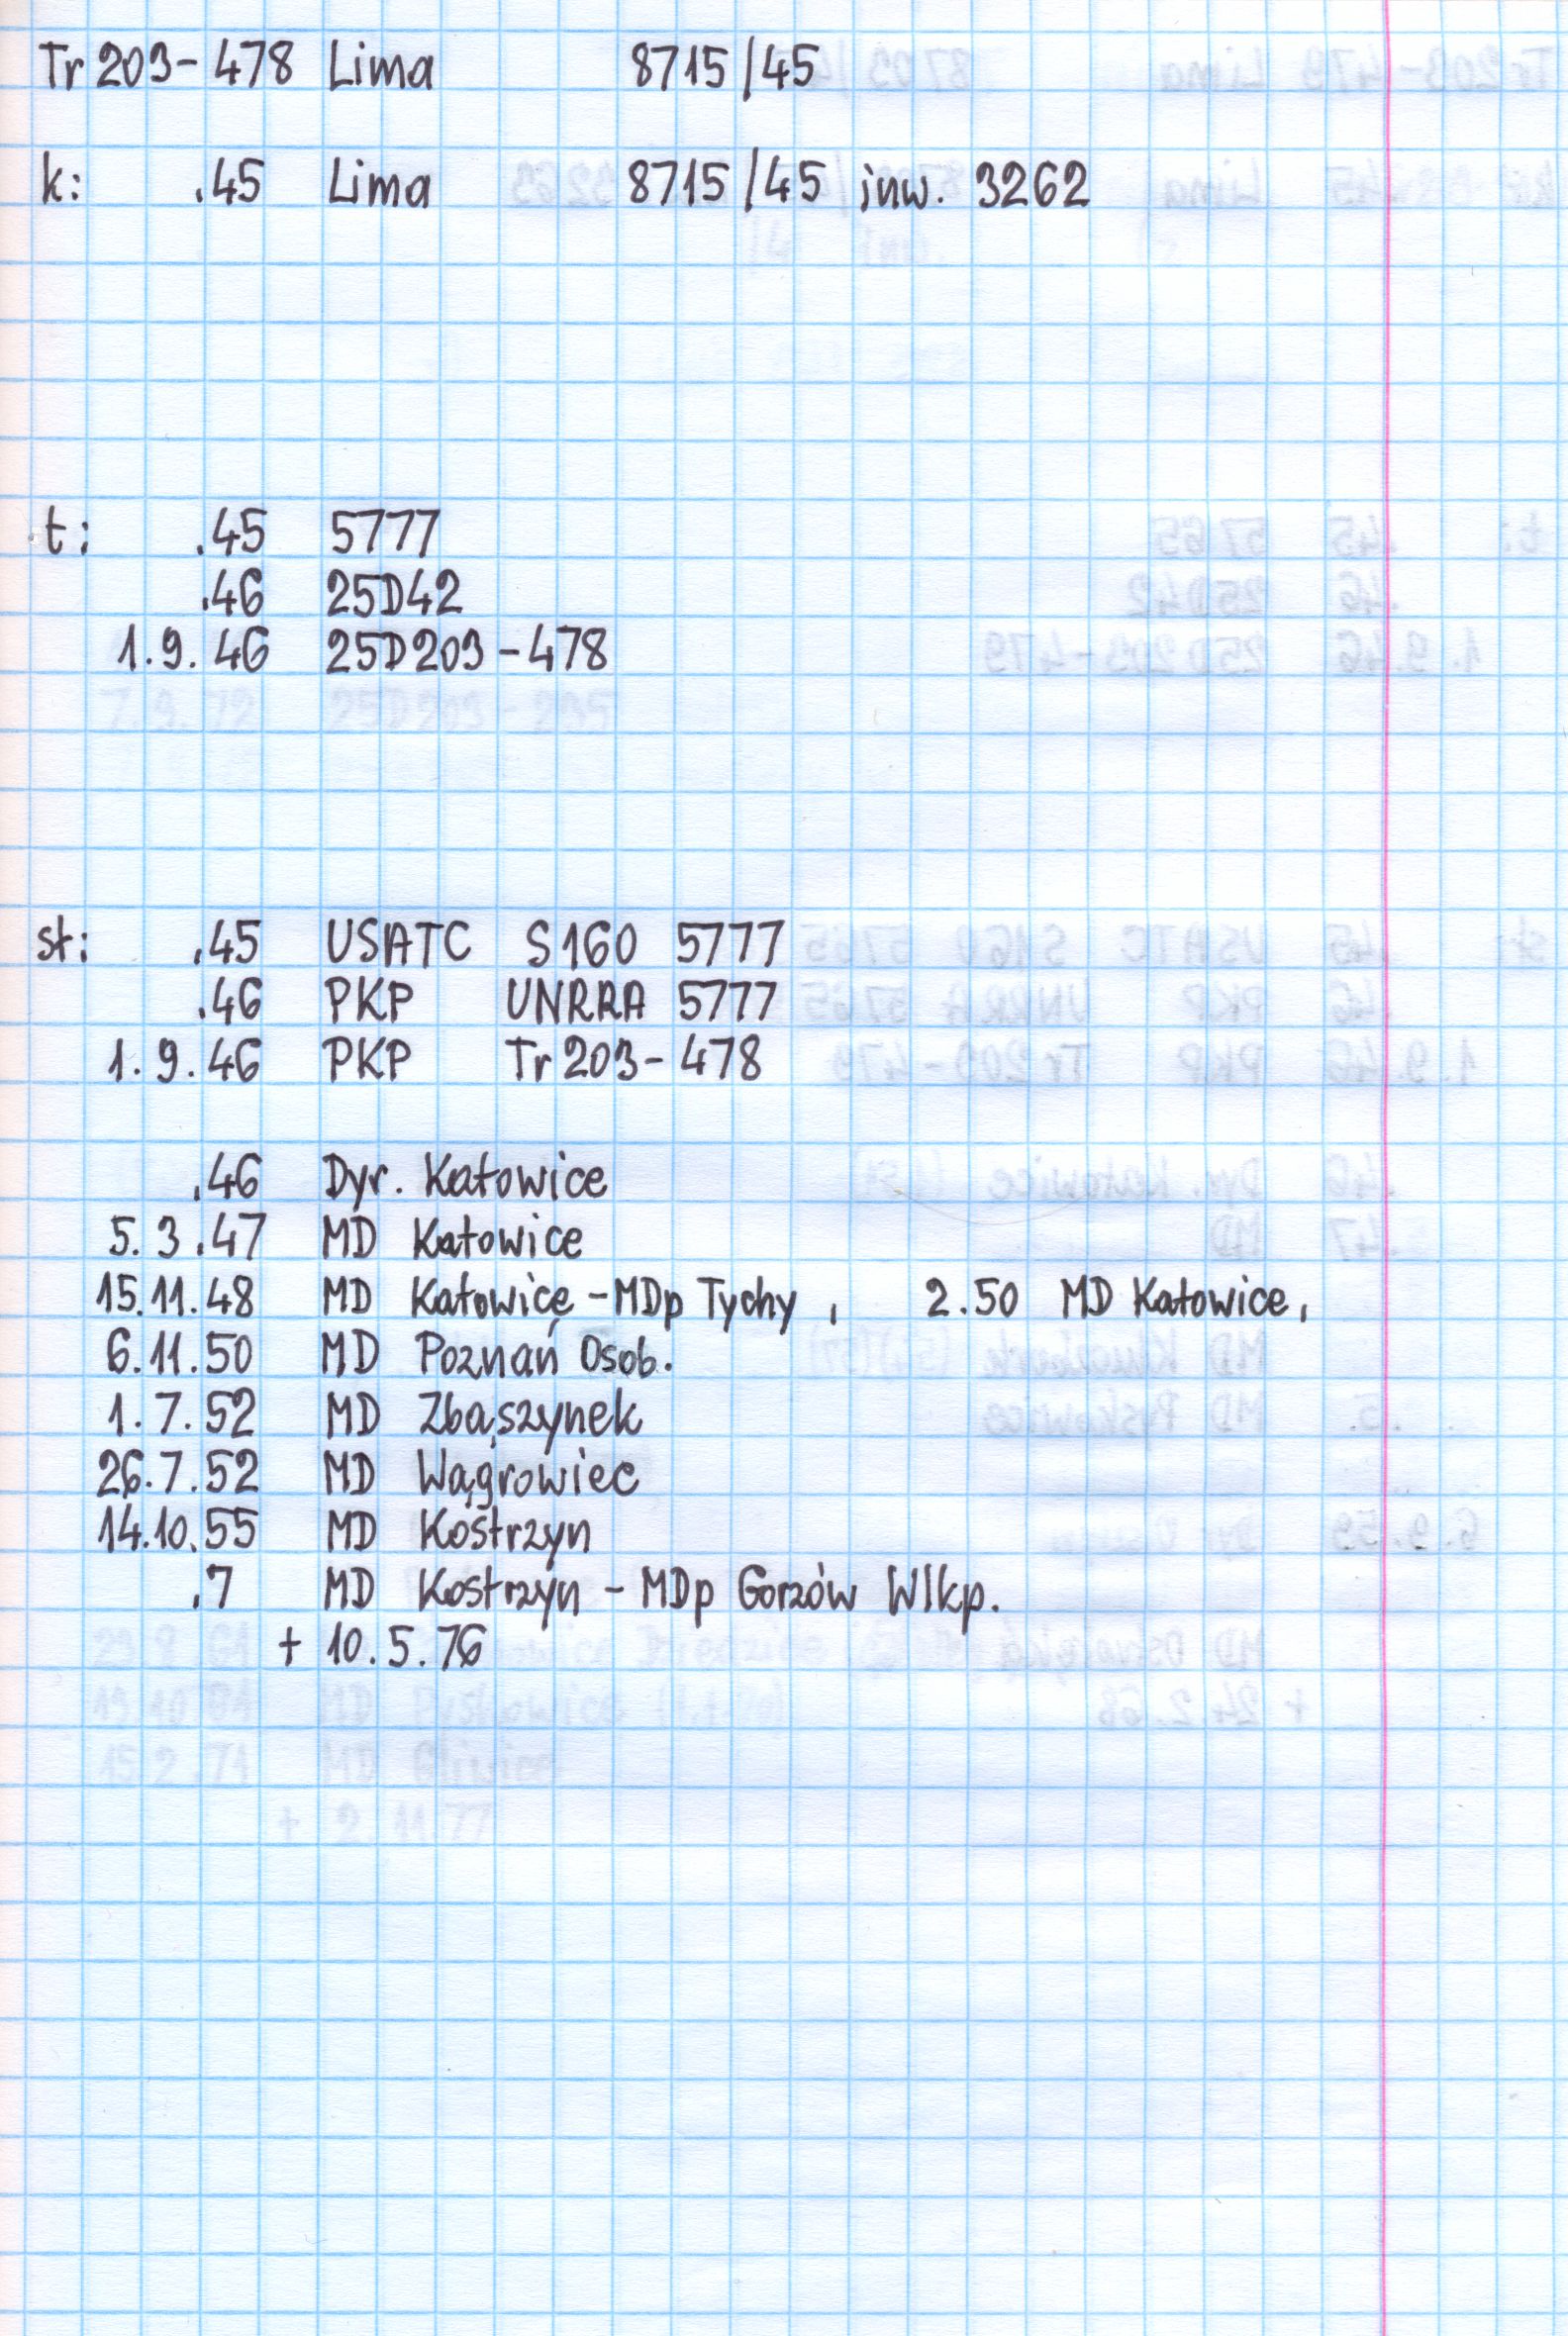 Tr 203-478 Lima 8715/45
k: .45 Lima 8715/45 inw. 3262
t: .45 5777
.46 25D42
1.9.46 25D203-478
st: .45 USATC S160 5777
.46 PKP UNRRA 5777
1.9.46 PKP Tr 203-478
.46 Dyr. Katowice
5.3.47 MD Katowice
15.11.48 MD Katowice - MDp Tychy, 2.50 MD Katowice,
6.11.50 MD Poznań Osob.
1.7.52 MD Zbąszynek
26.7.52 MD Wągrowiec
14.10.55 MD Kostrzyn
.7 MD Kostrzyn - MDp Gorzów Wlkp.
+ 10.5.76